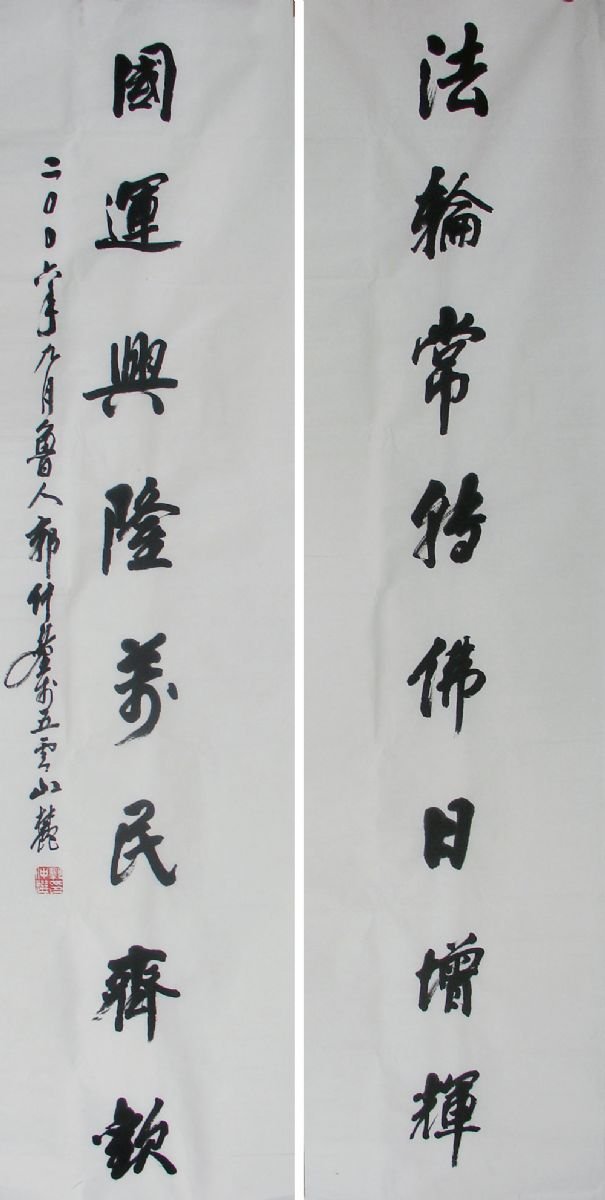 法輪常轉佛日增輝
國運興隆萬民齊歡
二〇〇六年九月魯人郭仲 於五雲山麓